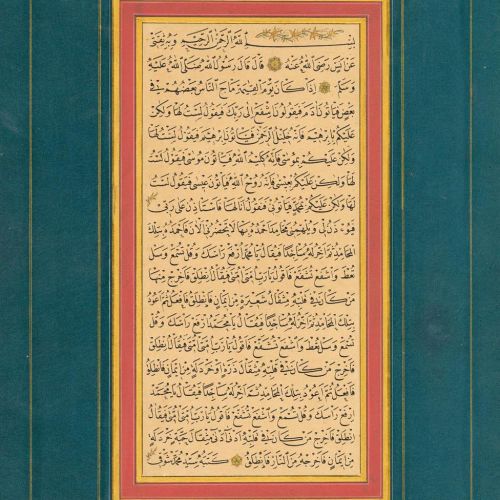 بسم الله الرحمن الرحيم وبه ثقتي
عن انس رضي الله عنه قال قال رسول الله صلى الله عليه
وسلم اذا كان يوم القيمة ماج الناس بعضهم في
بعض فياتون ادم فيقولون اشفع الى ربك فيقول لست لها ولكن
عليكم بابرهيم فانه خليل الرحمن فياتون ابرهيم فيقول لست لها
ولكن عليكم بموسى فانه كليم الله فياتون موسى فيقول لست
لها ولكن عليكم بعيسى فانه روح الله فياتون عيسى فيقول لست
لها ولكن عليكم بمحمد فياتوني فاقول انا لها فاستاذن على ربي
فيؤذن لي ويلهمني محامد احمده بها لا تحضرني الان فاحمده بتلك
المحامد ثم اخر له ساجدا فيقال يا محمد ارفع راسك وقل تسمع وسل
تعط واشفع تشفع فاقول يا رب امتي امتي فيقال انطلق فاخرج منها
من كان في قلبه مثقال شعيرة من ايمان فانطلق فافعل ثم اعود
بتلك المحامد ثم اخر له ساجدا فيقال يا محمد ارفع راسك وقل
تسمع وسل تعط واشفع تشفع فاقول يا رب امتي امتي فيقال انطلق
فاخرج من كان في قلبه مثقال ذرة او خردلة من ايمان فانطلق
فافعل ثم اعود بتلك المحامد ثم اخر له ساجدا فيقال يا محمد
ارفع راسك وقل تسمع واشفع تشفع فاقول يا رب امتي امتي فيقال
انطلق فاخرج من كان في قلبه ادنى ادنى مثقال حبة خردلة
من ايمان فاخرجه من النار فانطلق كتبه سيد محمد شوقي